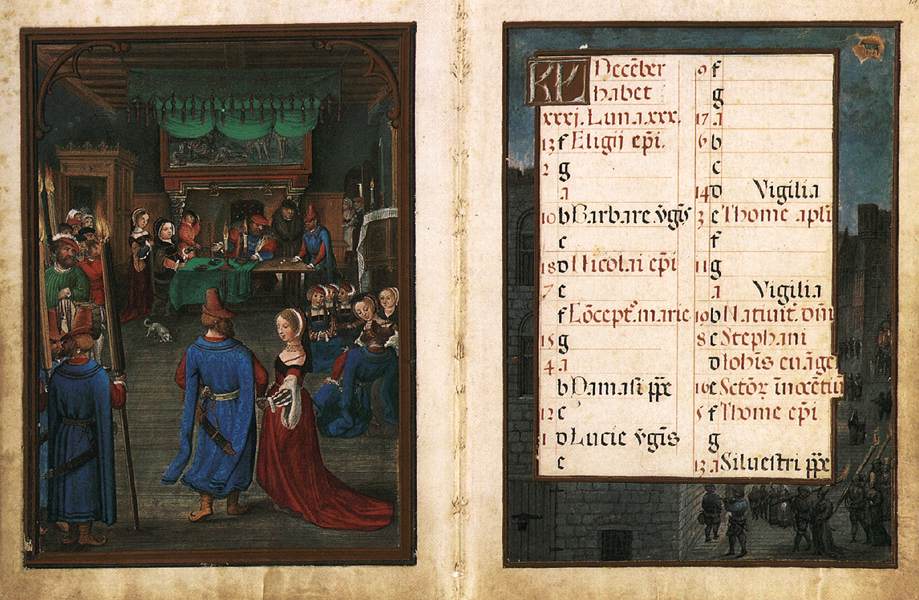 KL Decēber
habet
xxxj. Luna.xxx.
13 f Eligij ep̄i.
2 g
a
10 b Barbare v̄gis
c
18 d Nicolai ep̄i
7 e
f Cōcept. marie
15 g
4 a
b Damasi p̄p̄e
12 c
1 d Lucie v̄gis
e
9 f
g
17 a
6 b
c
14 d Vigilia
3 e Thome apli
f
11 g
a Vigilia
b Natiuit. dn̄i
8 c Stephani
d Iohis euāge
16 e Sctōr īnocētiū
5 f Thome ep̄i
g
13 a Siluestri p̄p̄e